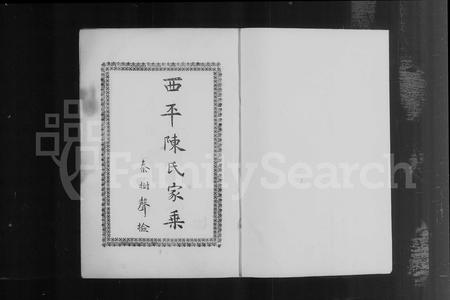 西平陳氏家乘
秦樹聲檢
FamilySearch